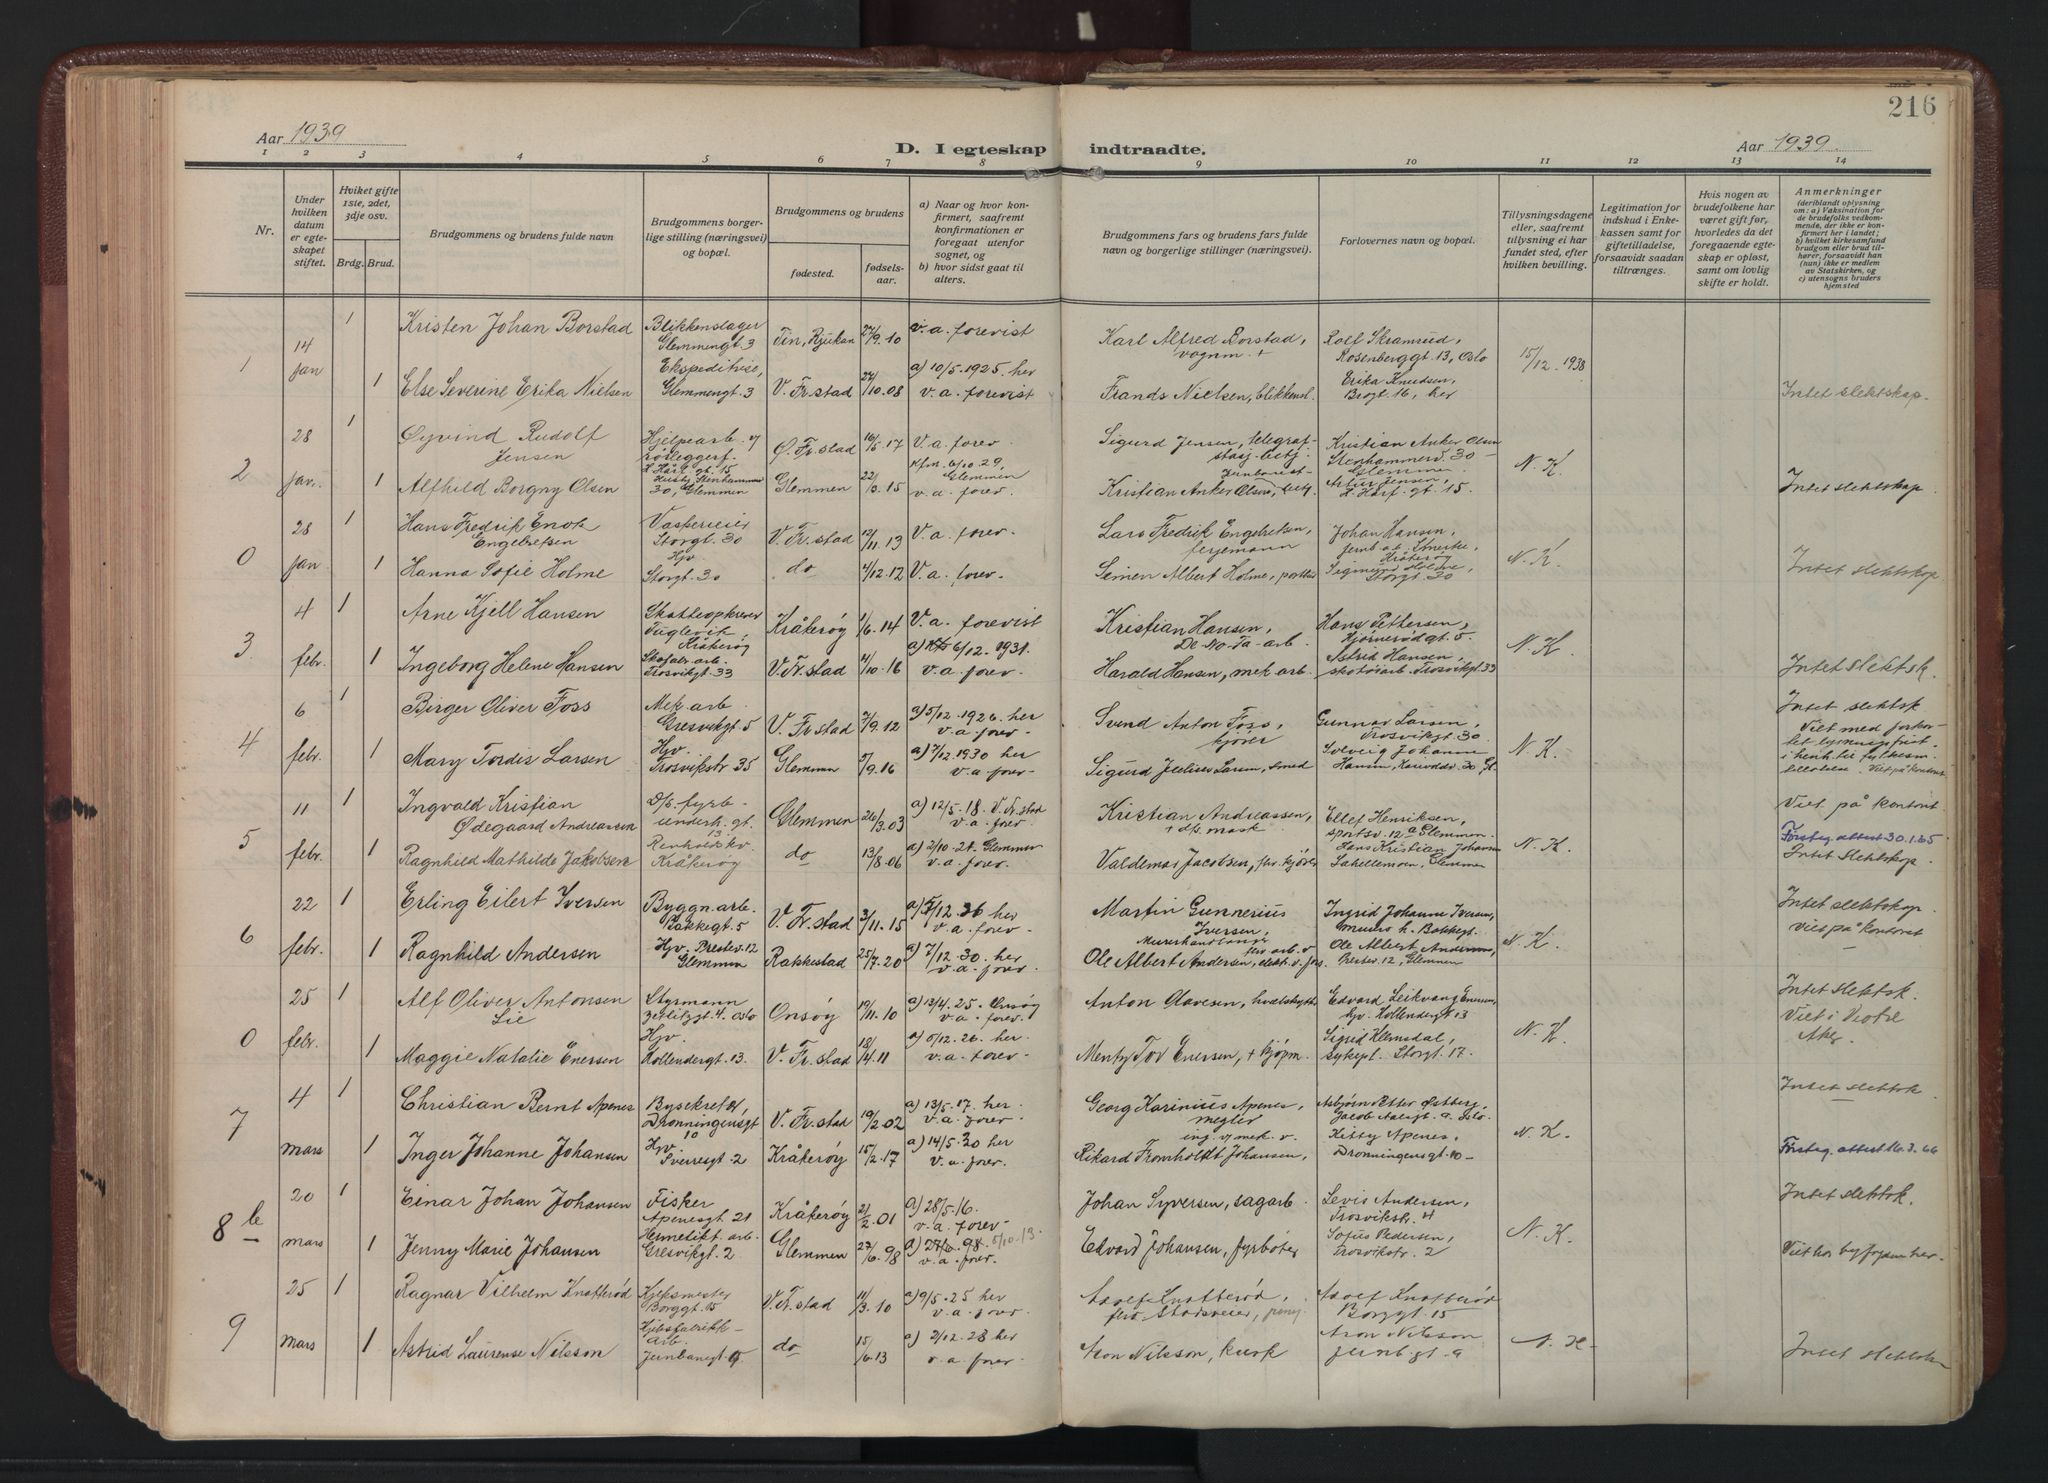 216
Aar 1939
D. I egteskap indtraadte.
Aar 1939.
1 2 3 4 5 6 7 8 9 10 11 12 13 14
Nr.
Under hvilken datum er egteskapet stiftet.
Hviket gifte 1ste, 2det, 3dje osv.
Brdg. Brud.
Brudgommens og brudens fulde navn
Brudgommens borgerlige stilling (næringsvei) og bopæl.
Brudgommens og brudens
fødested.
fødselsaar.
a) Naar og hvor konfirmert, saafremt konfirmationen er foregaat utenfor sognet, og
b) hvor sidst gaat til alters.
Brudgommens fars og brudens fars fulde navn og borgerlige stillinger (næringsvei).
Forlovernes navn og bopæl.
Tillysningsdagene eller, saafremt tillysning ei har fundet sted, efter hvilken bevilling.
Legitimation for indskud i Enkekassen samt for giftetilladelse, forsaavidt saadan tiltrænges.
Hvis nogen av brudefolkene har været gift før, hvorledes da det foregaaende egteskap er opløst, samt om lovlig skifte er holdt.
Anmerkninger (deriblandt oplysning om: a) Vaksination for de brudefolks vedkommende, der ikke er konfirmert her i landet; b) hvilket kirkesamfund brudgom eller brud tilhører, forsaavidt han (hun) ikke er medlem av Statskirken, og c) utensogns bruders hjemsted
1 14 jan
1 Kristen Johan Borstad Blikkenslager Glemmengt. 3 Tin, Rjukan 27/9.10 v. a. forevist Karl Alfred Borstad, vognm. + Rolf Skramrud, Rosenberggt. 13, Oslo 15/12. 1938
1 Else Severine Erika Nielsen Ekspeditrise, Glemmengt. 3 V. Fr.stad 27/10.08 a) 10/5.1925. her v. a. forevist Frands Nielsen, blikkensl. Erika Knudsen, Brogt. 16, her Intet slektskap.
2 28 jan.
1 Øyvind Rudolf Jensen Hjelpearb. v/ rørleggerf. Ø. Fr.stad 16/5.17 V. a. forev. Sigurd Jensen, telegrafstasj. betj. Kristian Anker Olsen Stenhammerv. 30 - Glemmen N. K.
1 Alfhild Borgny Olsen Hustj. Stenhammerv. 30, Glemmen Glemmen 22/3.15 Kfm. 6/10.29, Glemmen v. a. forev. Kristian Anker Olsen, betj. Artur Jensen, gt. 15. Intet slektskap
0 28 jan
1 Hans Fredrik Enok Engebretsen Vaskerieier Storgt. 30 V. Fr.stad 12/11.13 V. a. forev. Lars Fredrik Engebretsen, ferjemann Johan Hansen, Kråkerøy N. K.
1 Hanna Sofie Holme Hjv. Storgt. 30 do 4/12.12 V. a. forev. Seinen Albert Holme, Sigmund Holme, Storgt. 30 Intet slektskap
3 4 febr.
1 Arne Kjell Hansen Skatteopkrever Fuglevik, Kråkerøy Kråkerøy 1/6.14 V. a. forevist Kristian Hansen, De-No-Fa-arb. Hans Pettersen, Hjørnerødgt. 5. N. K.
1 Ingeborg Helene Hansen Skofabr. arb. Trosvikgt. 33 V. Fr.stad 4/10.16 a) 6/12. 1931. v. a. forev. Harald Hansen, mek arb. Astrid Hansen, skotøiarb. Trosvikgt. 33 Intet slektsk.
4 6 febr.
1 Birger Oliver Foss Mek arb Gresvikgt. 5 V. Fr.stad 7/9.12 a) 5/12.1926. her v. a. forev. Svend Anton Foss, kjører Gunnar Larsen, Trosvikgt. 30. N. K. Intet slektsk
1 Mary Tordis Larsen Hjv. Trosvikstr 35 Glemmen 5/9.16 a) 7/12.1930 her v. a. forev. Sigurd Larsen, smed Solveig Johanne Hansen, Viet med forkortet lysningsfrist i henh. til fylkesm. tillatelse. Viet på kontoret
5 11 febr.
1 Ingvald Kristian Ødegaard Andreassen D/s. fyrb. Glemmen 26/3.03 a) 12/5.18. V. Fr.stad v. a. forev. Kristian Andreassen, + mask Ellef Henriksen, sportsv. 12a Glemmen. N. K. Viet på kontoret.
1 Ragnhild Mathilde Jakobsen Kråkerøy do 13/8.06 a) 2/10.21. Glemmen v. a. forev. Valdemar Jacobsen, kjører Hans Kristian Johansen Glemmen Førsteg. attest 30.1.65 Intet slektskap
6 22 febr.
1 Erling Eilert Iversen Byggn. arb. Bakkegt. 5 V. Fr.stad 3/11.15 a) 7/12.36 her v. a. forev. Martin Gunnerius Iversen, Murerhandlanger Ingrid Johanne Iversen, Bakkegt. N. K. Intet slektskap.
1 Ragnhild Andersen Hjv. Prestev. 12 Glemmen Rakkestad 25/7.20 a) 7/12.30. her v. a. forev. Ole Albert Andersen, Ole Albert Andersen, Prestev. 12, Glemmen Viet på kontoret
0 25 febr.
1 Alf Oliver Antonsen Lie Styrmann Zetlitzgt. 4. Oslo Onsøy 19/11.10 a) 13/4.25. Onsøy v. a. forev. Anton Olavesen, hvalskytt. Edvard Leikvang Enersen, Hollendergt. 13 N. K. Intet slektsk.
1 Maggie Natalie Enersen Hjv. Hollendergt. 13. V. Fr.stad 18/4.11 a) 5/12.26. her v. a. forev. Tov Enersen, + kjøpm. Sigrid Klemsdal, sykepl. Storgt. 17. Viet i Vestre Aker.
7 4 mars
1 Christian Bernt Apenes Bysekretær, Dronningensgt 10 V. Fr.stad 19/2.02 a) 13/5.17. her v. a. forev. Georg Karinius Apenes, megler Asbjørn Petter Østberg, Oslo. N. K. Intet slektsk.
1 Inger Johanne Johansen Hjv. Sverresgt. 2 Kråkerøy 15/2.17 a) 14/5.30 her v. a. forev. ing. v/ mek. v. Rikard Fromholdt Johansen, Kitty Apenes, Dronningensgt. 10 - Førsteg. attest 16.3.66
8 20 mars
1 Einar Johan Johansen Fisker Apenesgt. 21 Kråkerøy 21/2.01 a) 28/5.16. v. a. forev. Johan Syversen, sagarb. Levis Andersen, Trosvikstr. 4 N. K. Intet slektsk.
1 Jenny Marie Johansen Hermetikk arb. Gresvikgt. 2 Glemmen 27/6.98 a) 5/10.13. v. a. forev. Edvard Johansen, fyrbøter Sofus Pedersen, Trosvikstr. 2 Viet hos byfogden her.
9 25 mars
1 Ragnar Vilhelm Knatterød Kjeksmester Borggt. 15 V. Fr.stad 11/3.10 a) 9/5.25 her v. a. forev. Adolf Knatterød, Adolf Knatterød Borggt. 15 N. K.
1 Astrid Laurense Nilsson arb Jernbanegt. 9 do 15/6.13 a) 2/12.28 her v. a. forev. Aron Nilsson, Aron Nilsson Jernb gt. 9 Intet slektsk